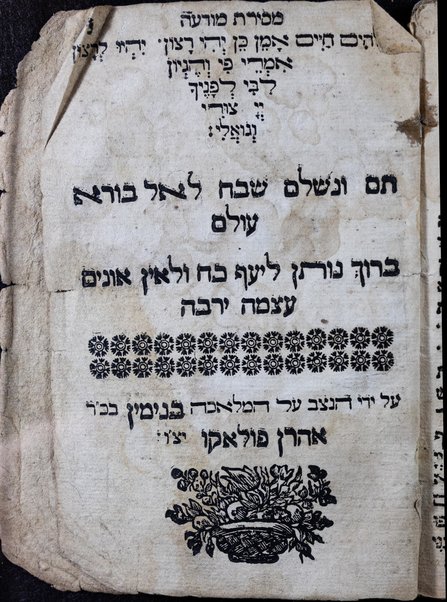 מסורת מודעה
חיים אמן כן יהי רצון. יהיו לרצון
אמרי פי והגיון
לבי לפניך
יי צורי
וגואלי:
תם ונשלם שבח לאל בורא
עולם
ברוך נותן ליעף כח ולאין אונים
עצמה ירבה
על ידי הנצב על המלאכה בנימין בכ"ר
אהרן פולאקו יצ"ו: